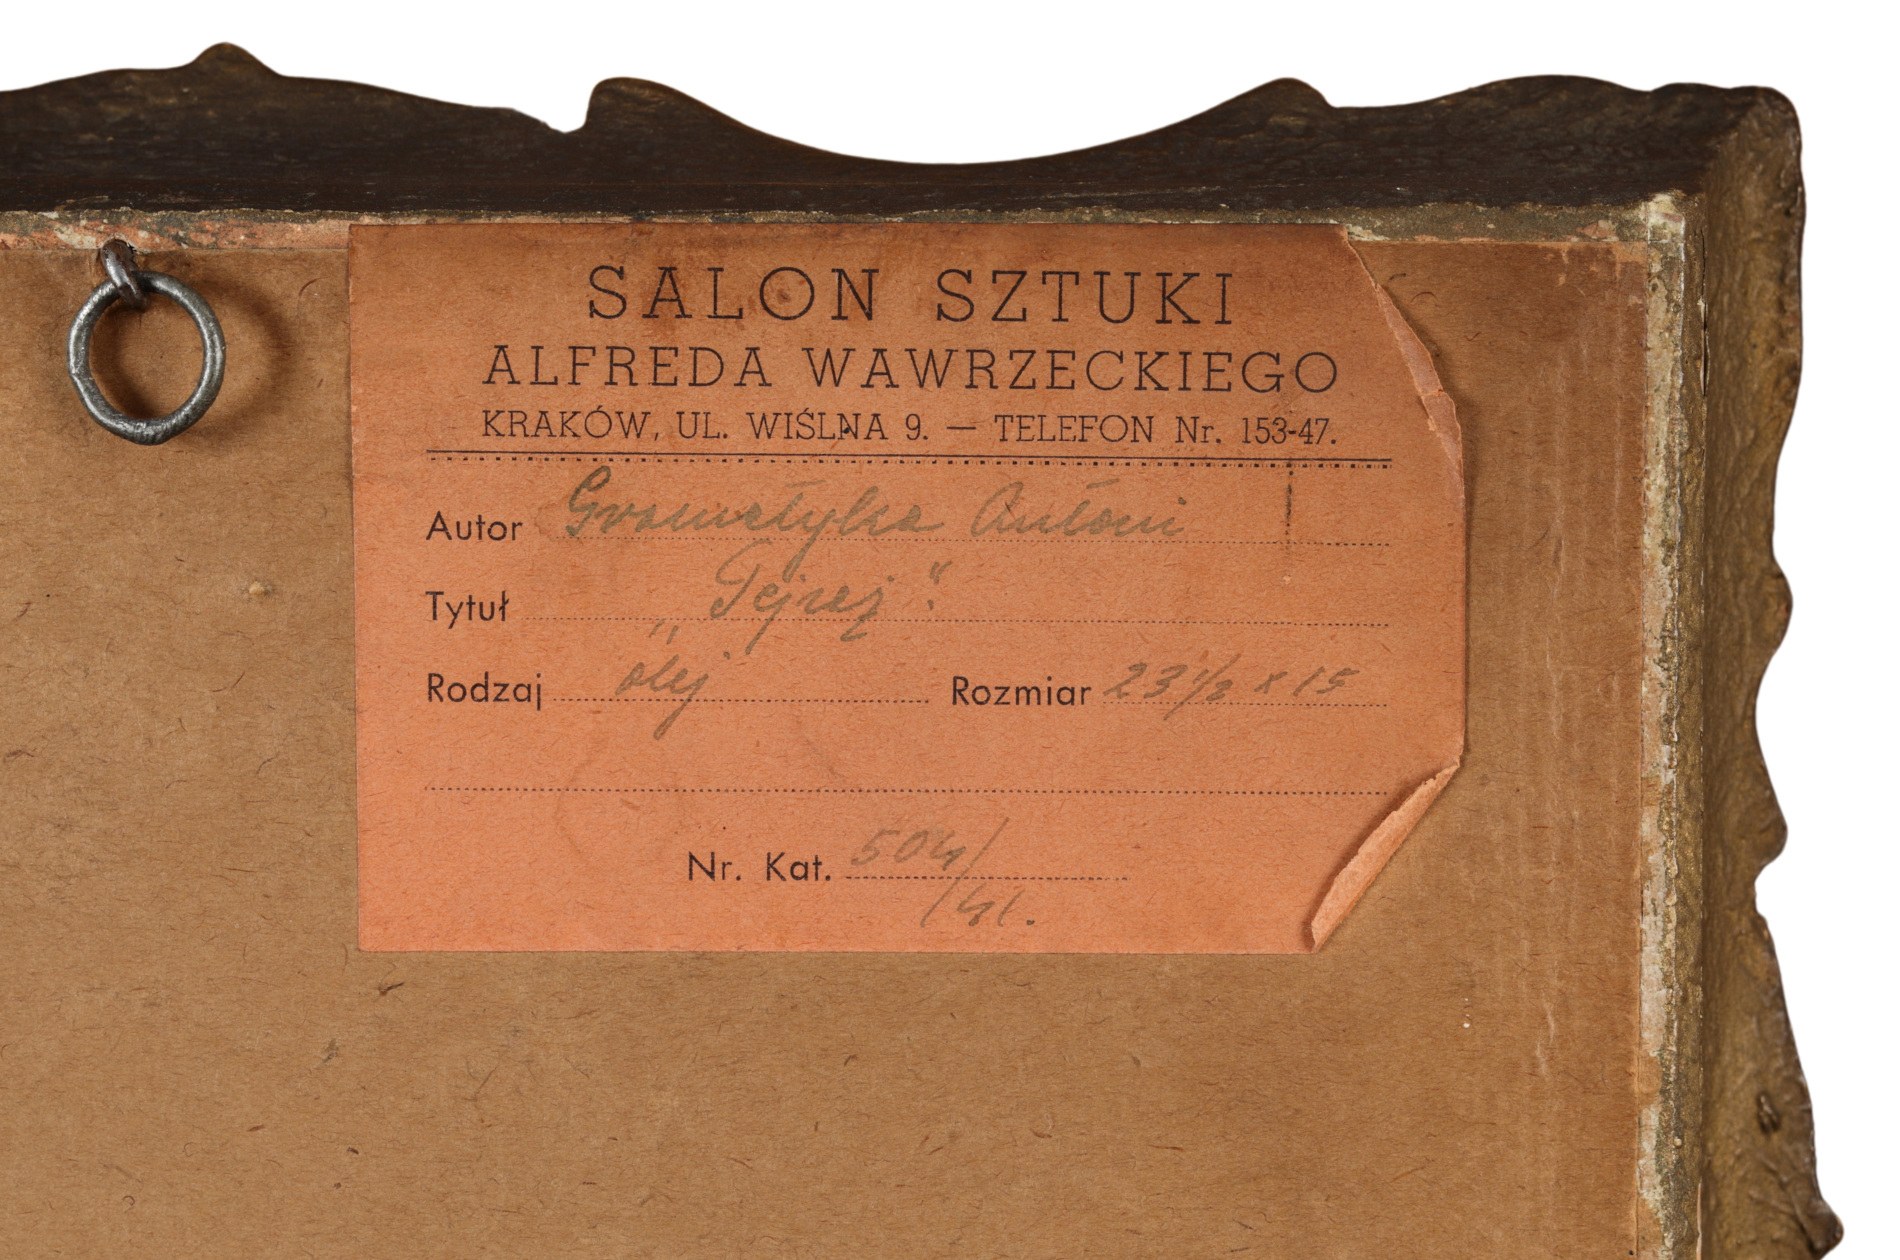 SALON SZTUKI
ALFREDA WAWRZECKIEGO
KRAKÓW, UL. WIŚLNA 9. — TELEFON Nr. 153-47.
Autor Gramatyka Antoni
Tytuł
Rodzaj olej Rozmiar 23 1/2 x 15
Nr. Kat. 504/41.